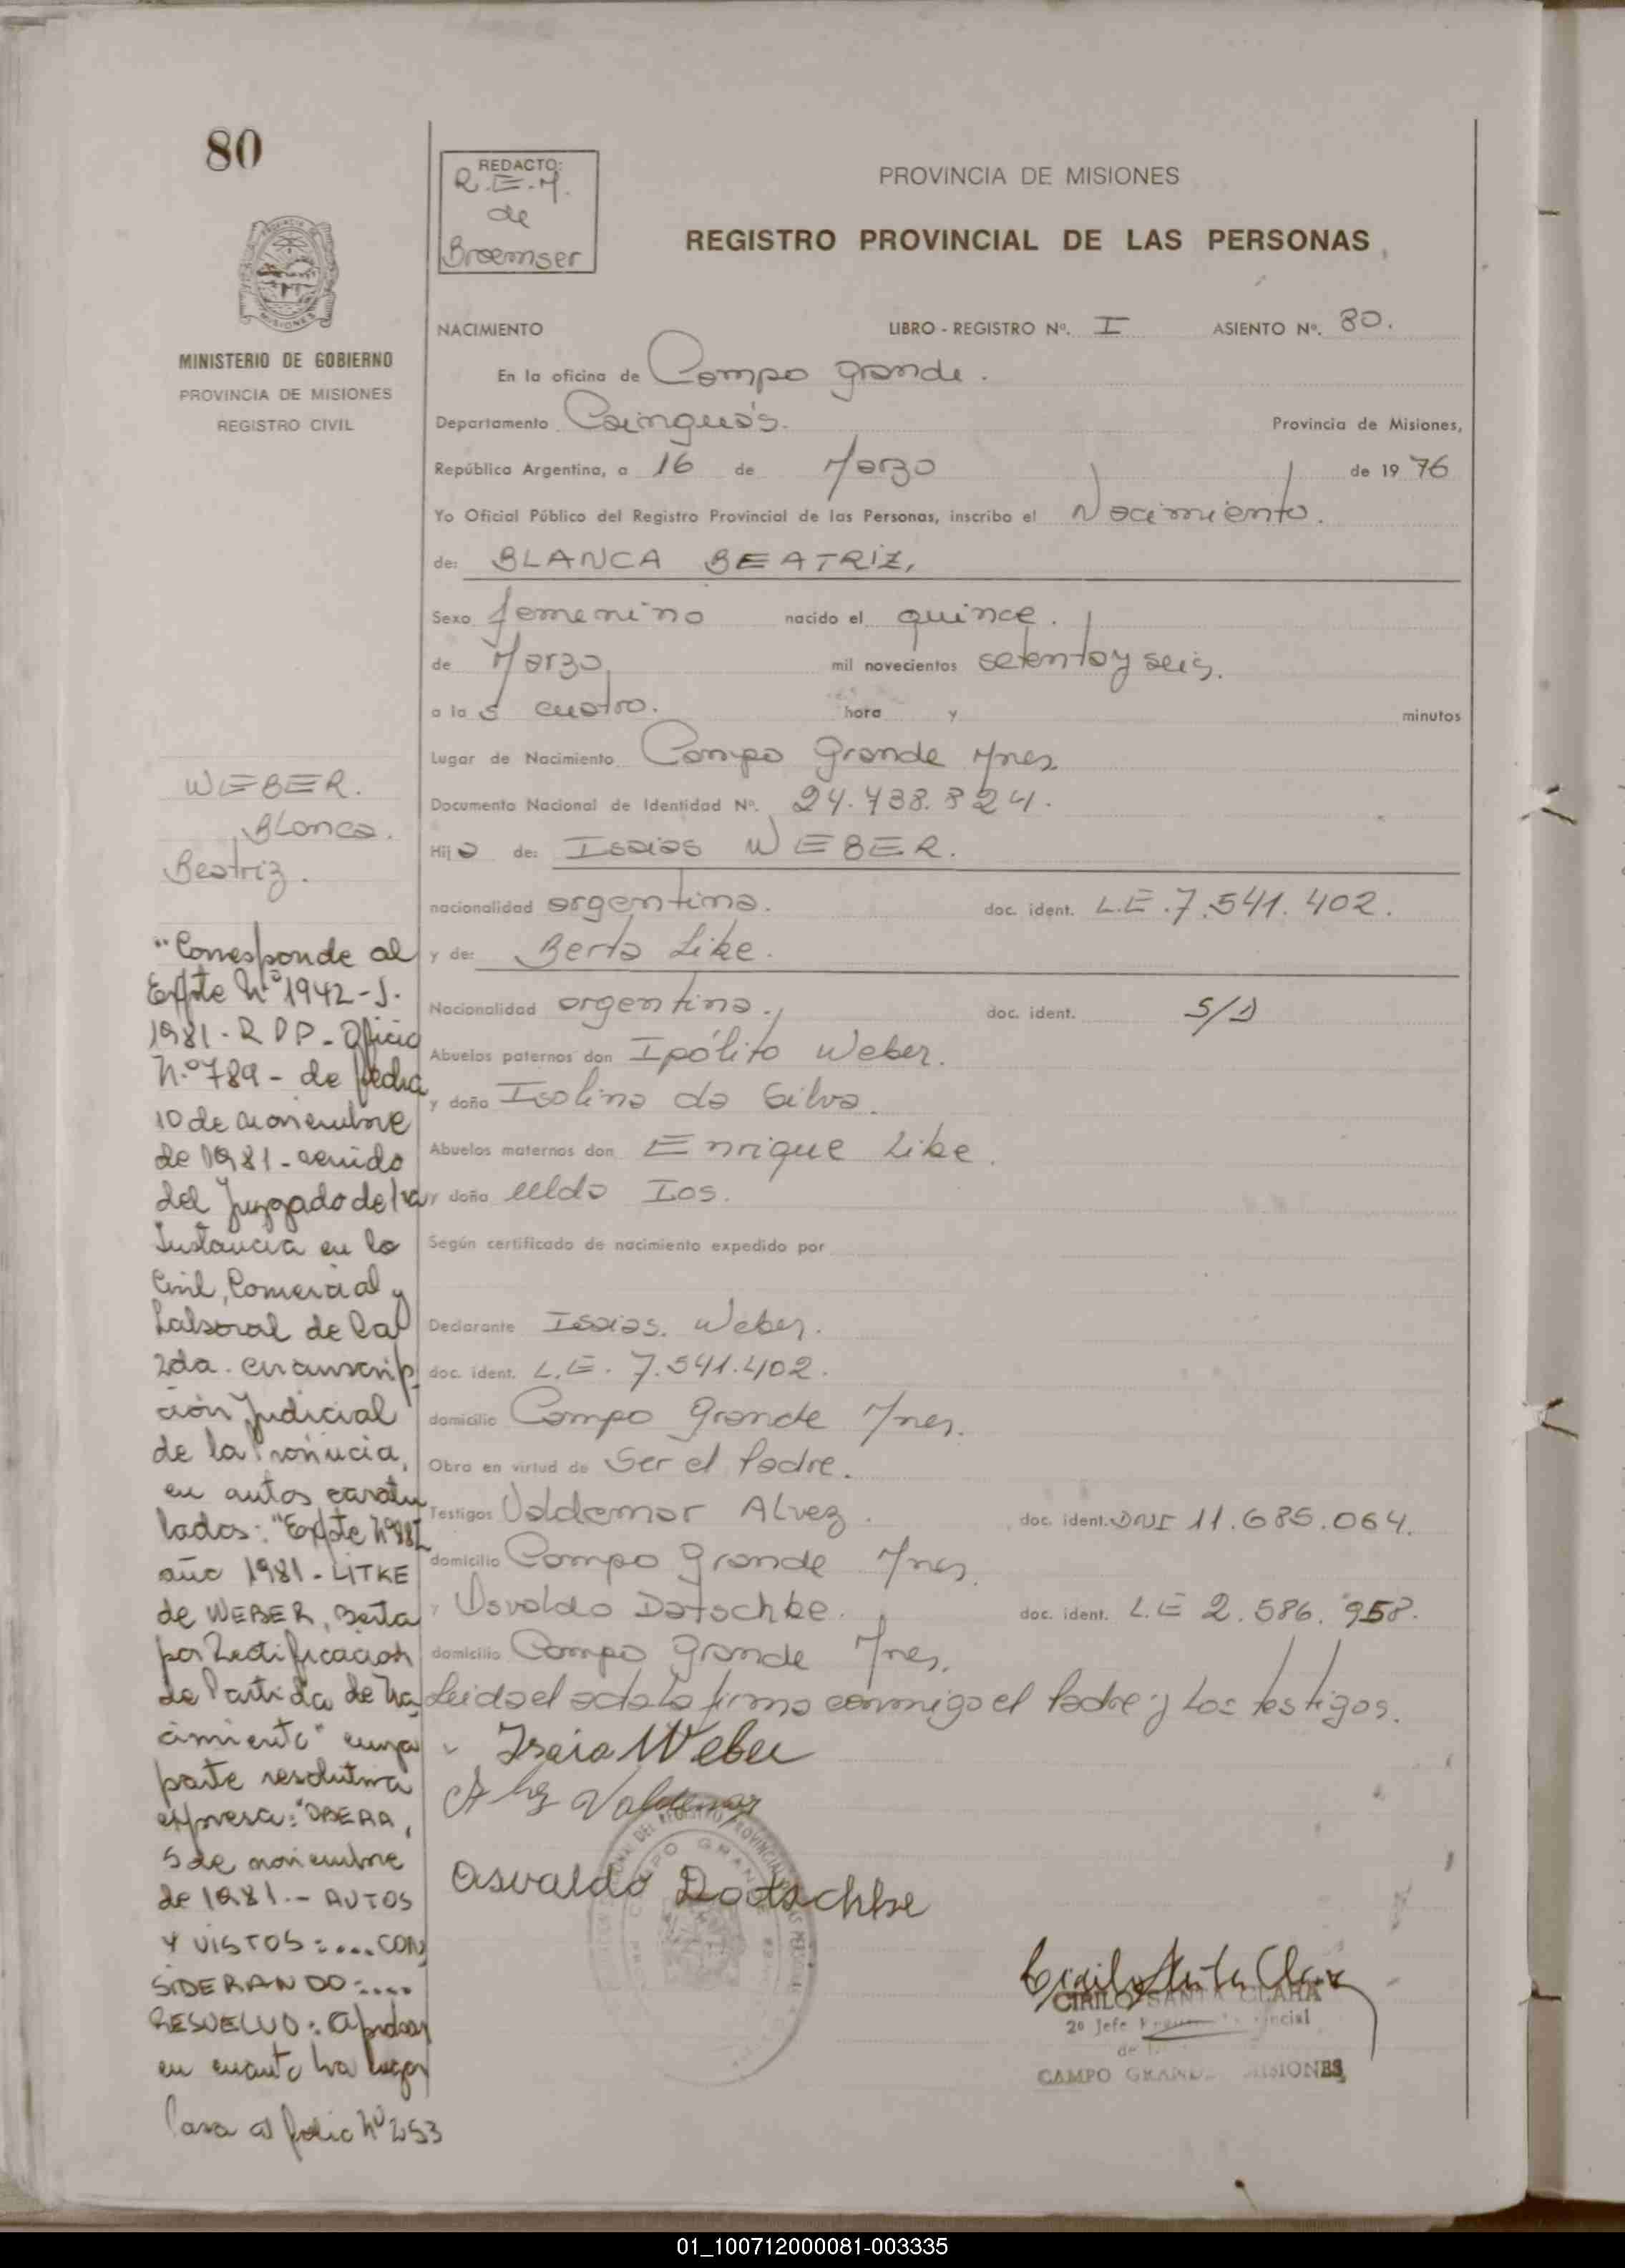 80
REDACTO:
R.E.M.
de
Broemser
PROVINCIA DE MISIONES
REGISTRO PROVINCIAL DE LAS PERSONAS
MISIONES
MINISTERIO DE GOBIERNO
PROVINCIA DE MISIONES
REGISTRO CIVIL
NACIMIENTO LIBRO - REGISTRO Nº. I ASIENTO Nº. 80.
En la oficina de Campo grande.
Departamento Cainguás. Provincia de Misiones,
República Argentina, a 16 de Marzo de 19 76
Yo Oficial Público del Registro Provincial de las Personas, inscribo el Nacimiento.
de: BLANCA BEATRIZ,
Sexo femenino nacido el quince.
de Marzo mil novecientos setenta y seis.
a la s cuatro. hora y minutos
Lugar de Nacimiento Campo Grande Mnes
Documento Nacional de Identidad Nº. 24.738.824.
Hij a de: Isaias WEBER.
nacionalidad argentina. doc. ident. L.E. 7.541.402.
y de: Berta Like.
Nacionalidad argentina. doc. ident. S/D
Abuelos paternos don Ipólito Weber.
y doña Isolina da Silva.
Abuelos maternos don Enrique Like.
y doña Ios.
Según certificado de nacimiento expedido por
Declarante Isaias. Weber.
doc. ident. L.E. 7.541.402.
domicilio Campo grande Mnes.
Obra en virtud de Ser el Padre.
Testigos Valdemar Alvez. doc. ident. DNI 11.685.064.
domicilio Campo grande Mnes.
y Osvaldo Datschke. doc. ident. L.E 2.586.958.
domicilio Campo grande Mnes.
Leida el acta la firma conmigo el Padre y Los testigos.
Isaia Weber
Valdemar
Osvaldo Dootschke
CIRILO SANTA CLARA
2º Jefe
CAMPO GRANDE MISIONES
WEBER.
Blanca.
Beatriz.
"Corresponde al
Expte Nº 1942-J.
1981-R P P - Oficio
N.º 789 - de fecha
10 de noviembre
de 1981 - venido
del Juzgado de 1ra
Instancia en lo
Civil, Comercial y
Laboral de la
2da. circunscrip
ción Judicial
de la Provincia,
en autos caratu
lados: "Expte Nº
año 1981 - LITKE
de WEBER, Berta
por Rectificación
de Partida de Na
cimiento" cuya
parte resolutiva
expresa: "OBERA,
5 de noviembre
de 1981.- AUTOS
Y VISTOS:....CON
SIDERANDO:....
RESUELVO: Aprobar
en cuanto ha lugar
Pasa al folio Nº 253
01_100712000081-003335